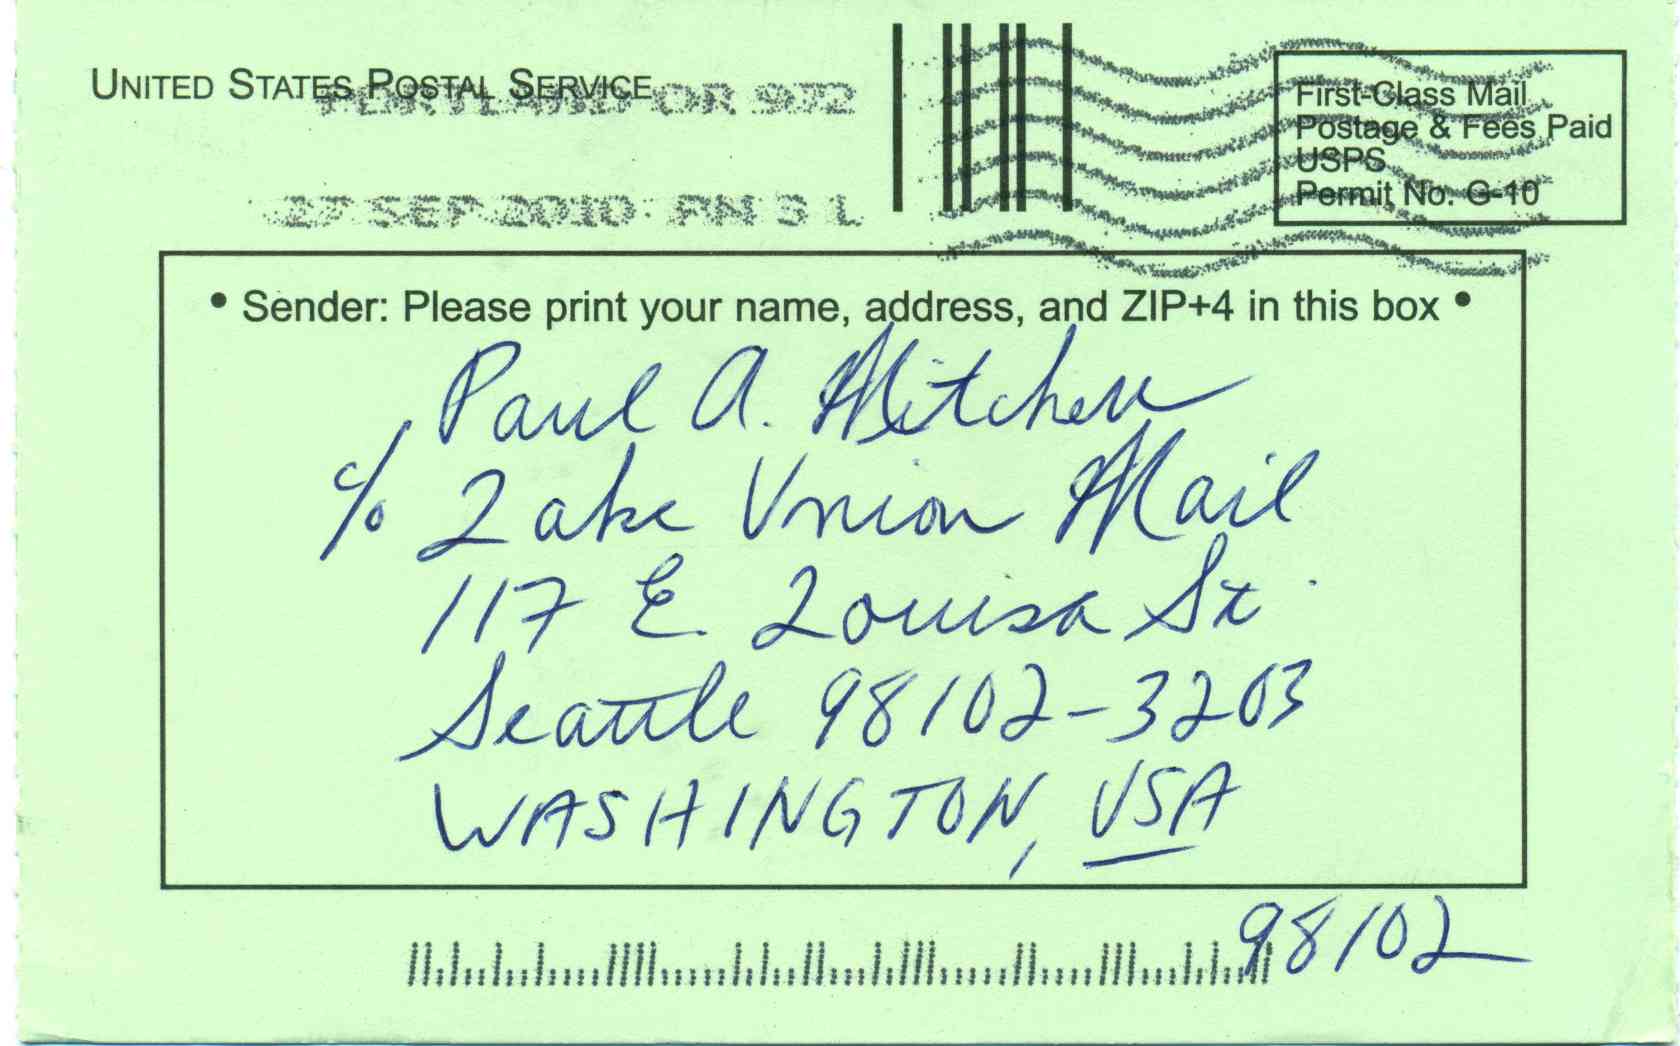 UNITED STATES POSTAL SERVICE
PORTLAND OR 972
27 SEP 2010 PM 3 L
First-Class Mail
Postage & Fees Paid
USPS
Permit No. G-10
• Sender: Please print your name, address, and ZIP+4 in this box •
Paul A. Mitchell
c/o Lake Union Mail
117 E. Louisa St.
Seattle 98102-3203
WASHINGTON, USA
98102